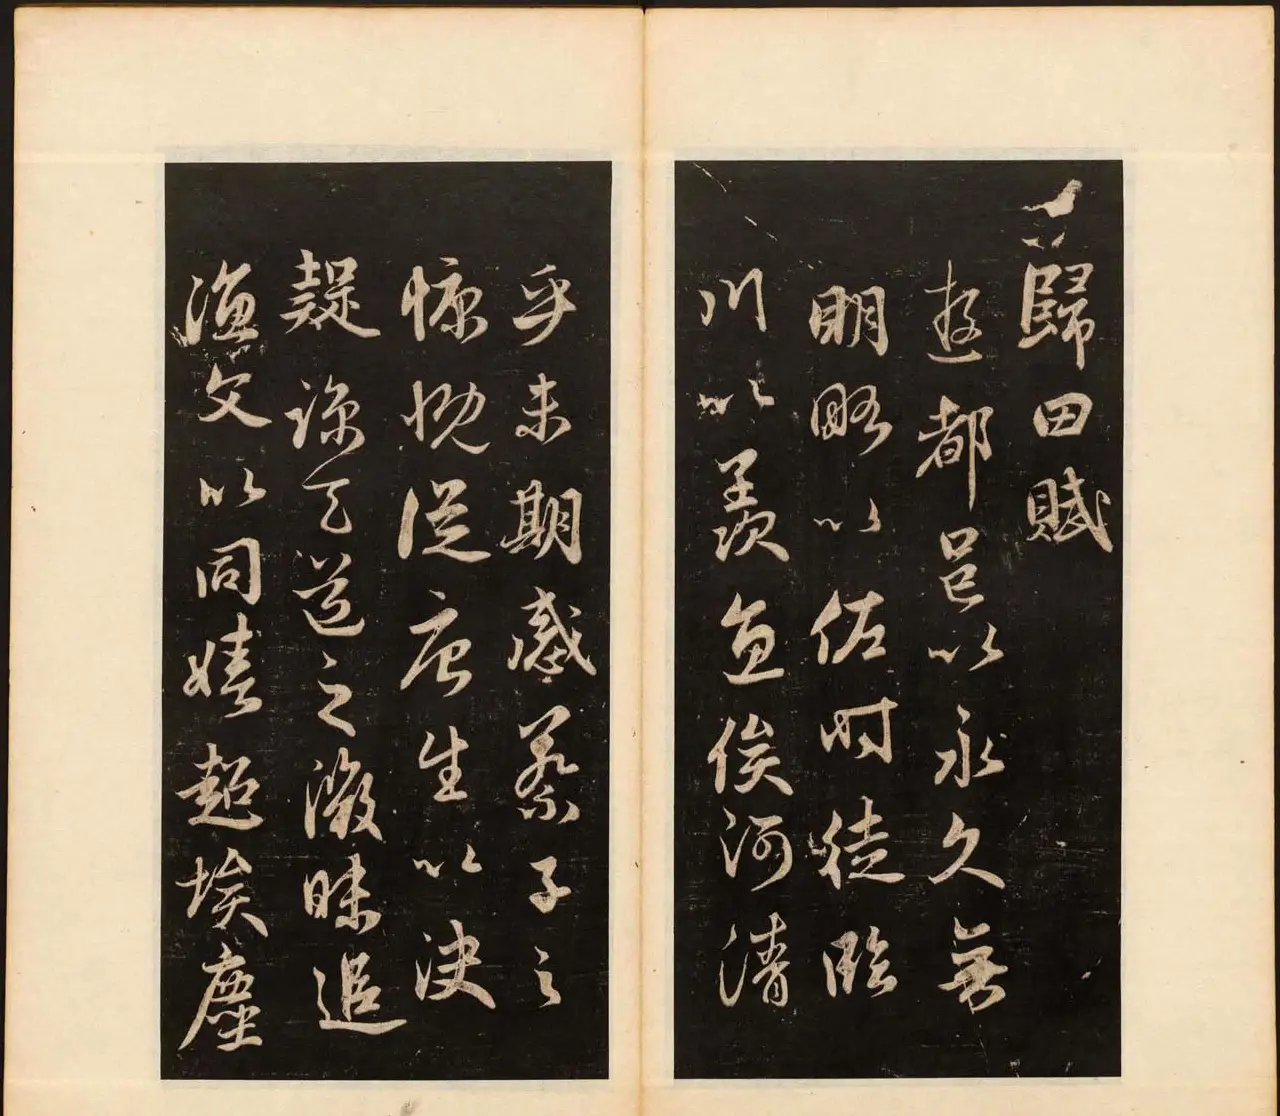 歸田賦
遊都邑以永久無
明略以佐時徒臨
川以羡魚俟河清
乎未期感蔡子之
慷慨從唐生以決
疑諒天道之微昧追
漁父以同嬉超埃塵